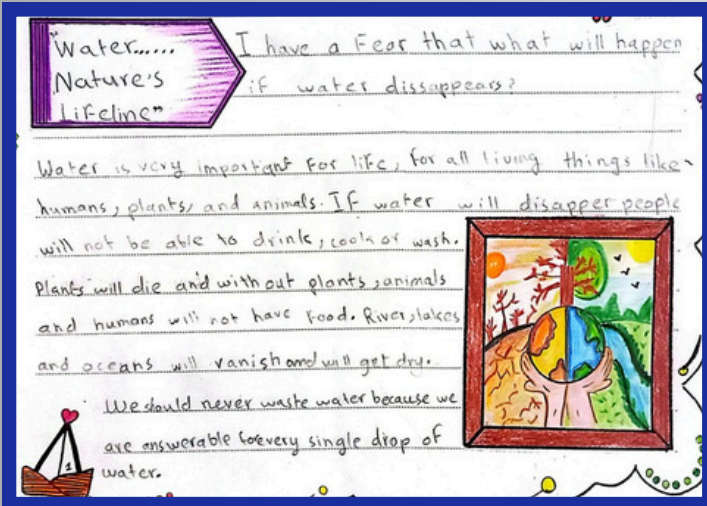 "Water......
Nature's
Lifeline"
I have a Fear that what will happen
if water dissappears?
Water is very important for life, for all living things like
humans, plants, and animals. If water will disapper people
will not be able to drink, cook or wash.
Plants will die and without plants, animals
and humans will not have food. River, lakes
and oceans will vanish and will get dry.
We should never waste water because we
are answerable for every single drop of
water.
1